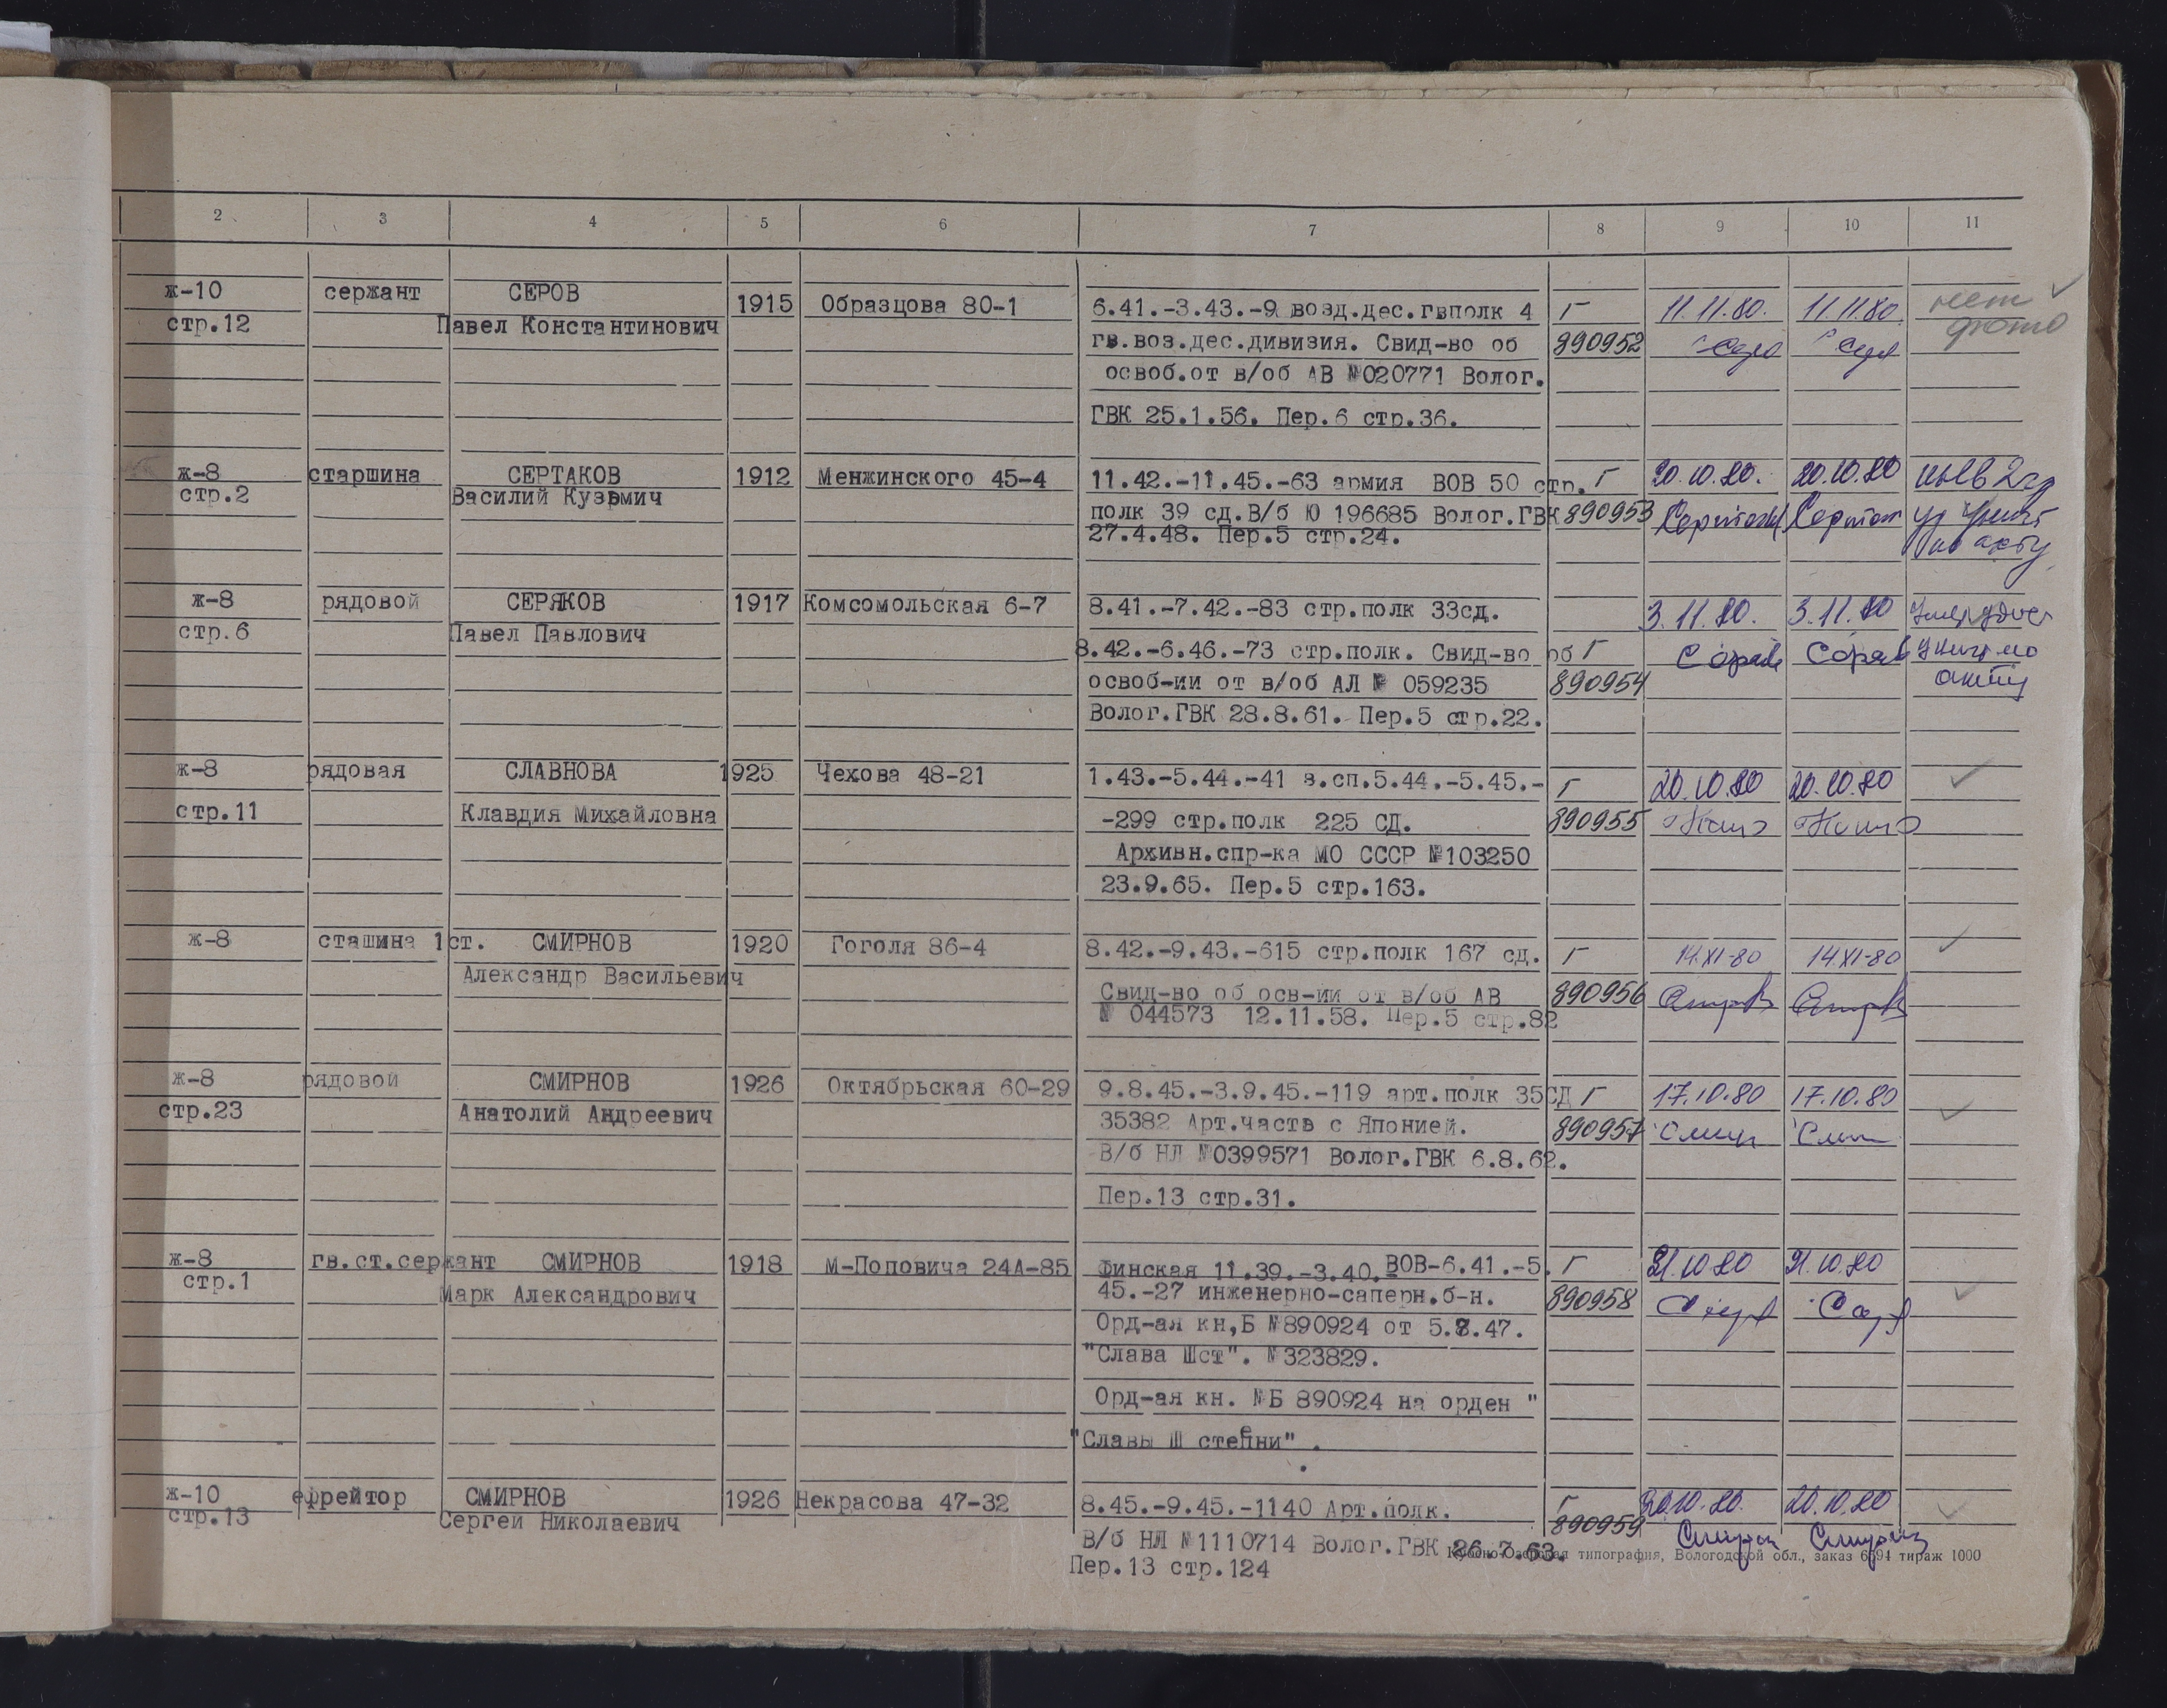 2 3 4 5 6 7 8 9 10 11
ж-10 сержант СЕРОВ 1915 Образцова 80-1 6.41.-3.43.-9 возд.дес.гвполк 4 Г 11.11.80. 11.11.80. нет
стр.12 Павел Константинович гв.воз.дес.дивизия. Свид-во об 890952 фото
освоб.от в/об АВ №020771 Волог.
ГВК 25.1.56. Пер.6 стр.36.
ж-8 старшина СЕРТАКОВ 1912 Менжинского 45-4 11.42.-11.45.-63 армия ВОВ 50 стр. Г 20.10.80. 20.10.80
стр.2 Василий Кузьмич полк 39 сд.В/б Ю 196685 Волог.ГВК 890953
27.4.48. Пер.5 стр.24. по акту
ж-8 рядовой СЕРЯКОВ 1917 Комсомольская 6-7 8.41.-7.42.-83 стр.полк 33сд. 3.11.80. 3.11.80
стр.6 Павел Павлович 8.42.-6.46.-73 стр.полк. Свид-во об Г
освоб-ии от в/об АЛ № 059235 890954 акту
Волог.ГВК 28.8.61. Пер.5 стр.22.
ж-8 рядовая СЛАВНОВА 1925 Чехова 48-21 1.43.-5.44.-41 з.сп.5.44.-5.45.- Г 20.10.80 20.10.80
стр.11 Клавдия Михайловна -299 стр.полк 225 СД. 890955
Архивн.спр-ка МО СССР №103250
23.9.65. Пер.5 стр.163.
ж-8 сташина 1ст. СМИРНОВ 1920 Гоголя 86-4 8.42.-9.43.-615 стр.полк 167 сд. Г 14.XI-80 14.XI-80
Александр Васильевич Свид-во об осв-ии от в/об АВ 890956
№ 044573 12.11.58. Пер.5 стр.82
ж-8 рядовой СМИРНОВ 1926 Октябрьская 60-29 9.8.45.-3.9.45.-119 арт.полк 35СД Г 17.10.80 17.10.80
стр.23 Анатолий Андреевич 35382 Арт.часть с Японией. 890957
В/б НЛ №0399571 Волог.ГВК 6.8.62.
Пер.13 стр.31.
ж-8 гв.ст.сержант СМИРНОВ 1918 М-Поповича 24А-85 Финская 11.39.-3.40.-ВОВ-6.41.-5. Г 21.10.80 21.10.80
стр.1 Марк Александрович 45.-27 инженерно-саперн.б-н. 890958
Орд-ая кн,Б №890924 от 5.8.47.
"Слава Шст". №323829.
Орд-ая кн. №Б 890924 на орден "
"Славы Ш степени" .
ж-10 ефрейтор СМИРНОВ 1926 Некрасова 47-32 8.45.-9.45.-1140 Арт.полк. Г 20.10.80. 20.10.80
стр.13 Сергей Николаевич В/б НЛ №1110714 Волог.ГВК 26.7.63. 890959
типография, Вологодской обл., заказ 6694 тираж 1000
Пер.13 стр.124